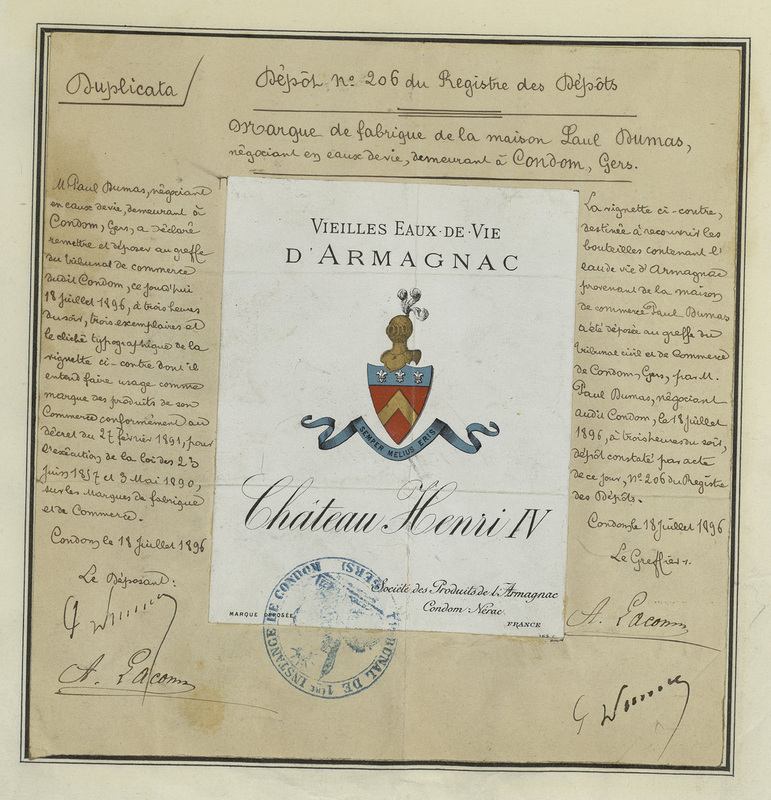 Duplicata
Dépôt No 206 du Registre des Dépôts
Marque de fabrique de la maison Paul Dumas,
négociant en eaux de vie, demeurant à Condom, Gers.
M. Paul Dumas, négociant
en eaux de vie, demeurant à
Condom, Gers, a déclaré
remettre et déposer au greffe
du tribunal de commerce
dudit Condom, ce jourd'hui
18 Juillet 1896, à trois heures
du soir, trois exemplaires et
le cliché typographique de la
vignette ci-contre dont il
entend faire usage comme
marque des produits de son
Commerce conformément au
décret du 27 février 1891, pour
l'exécution de la loi des 23
Juin 1857 et 3 Mai 1890,
sur les Marques de fabrique
et de Commerce.
Condom, le 18 Juillet 1896
Le Déposant:
A. Lacomm
VIEILLES EAUX-DE-VIE
D'ARMAGNAC
SEMPER MELIUS ERIS
Château Henri IV
Société des Produits de l'Armagnac
Condom-Nérac
MARQUE DÉPOSÉE
FRANCE
TRIBUNAL DE 1ÈRE INSTANCE DE CONDOM (GERS)
La vignette ci-contre,
destinée à recouvrir les
bouteilles contenant l'
eau de vie d'Armagnac
provenant de la maison
de commerce Paul Dumas
a été déposée au greffe du
tribunal civil et de Commerce
de Condom, Gers, par M.
Paul Dumas, négociant
audit Condom, le 18 Juillet
1896, à trois heures du soir,
dépôt constaté par acte
de ce jour, No 206 du Registre
des Dépôts.
Condom, le 18 Juillet 1896
Le Greffier.
A. Lacomm